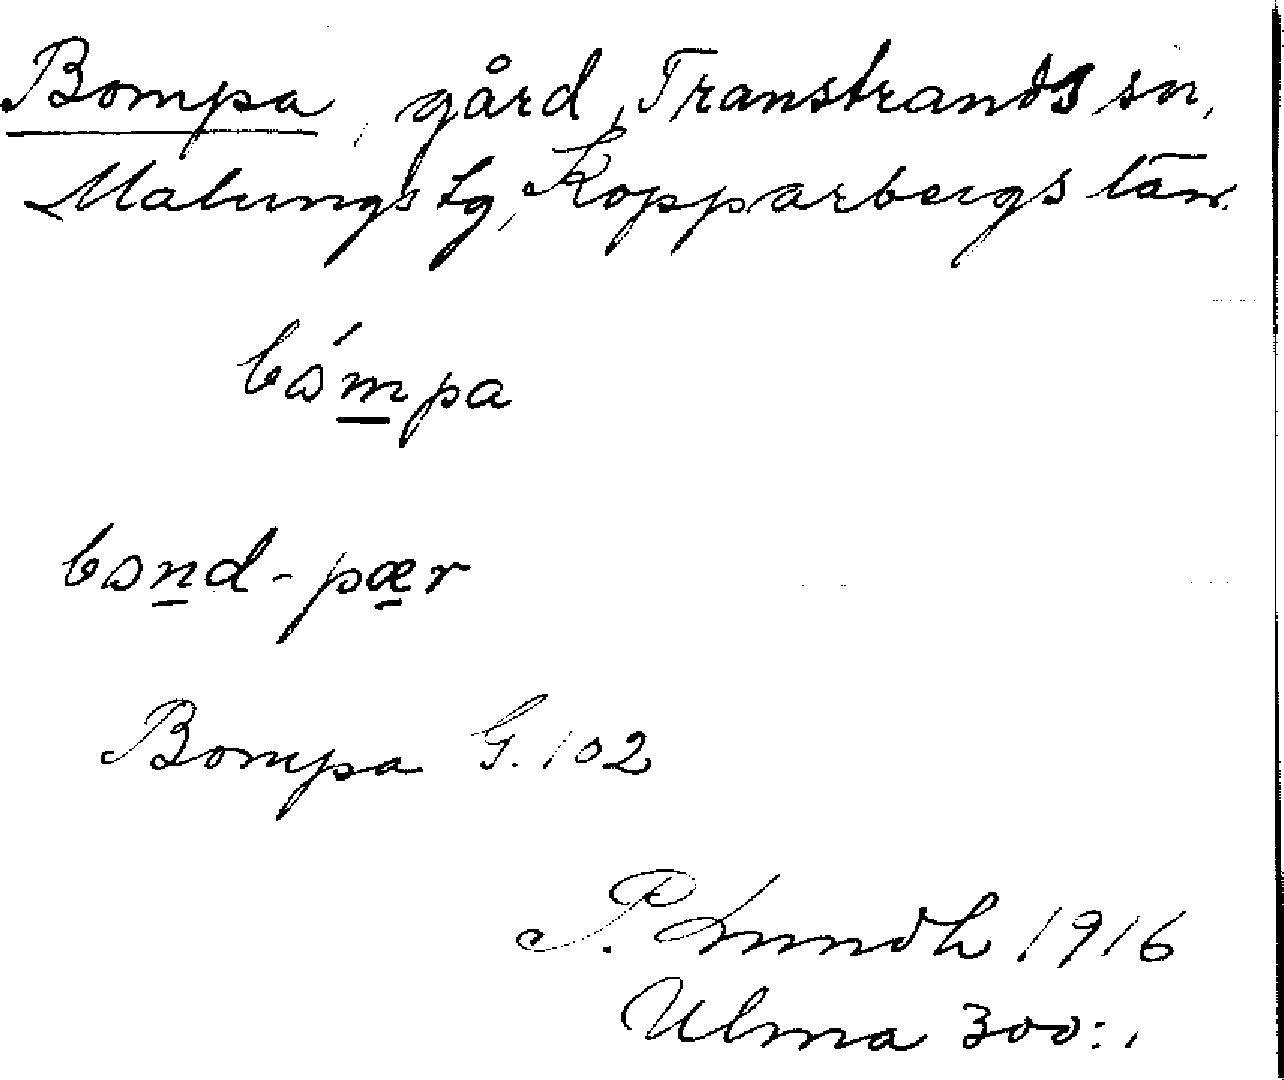 Bompa, gård, Transtrands sn,
Malungs tg, Kopparbergs län.
bómpa
bond-pær
Bompa G. 102
P. Lundh 1916
Ulma 300:1